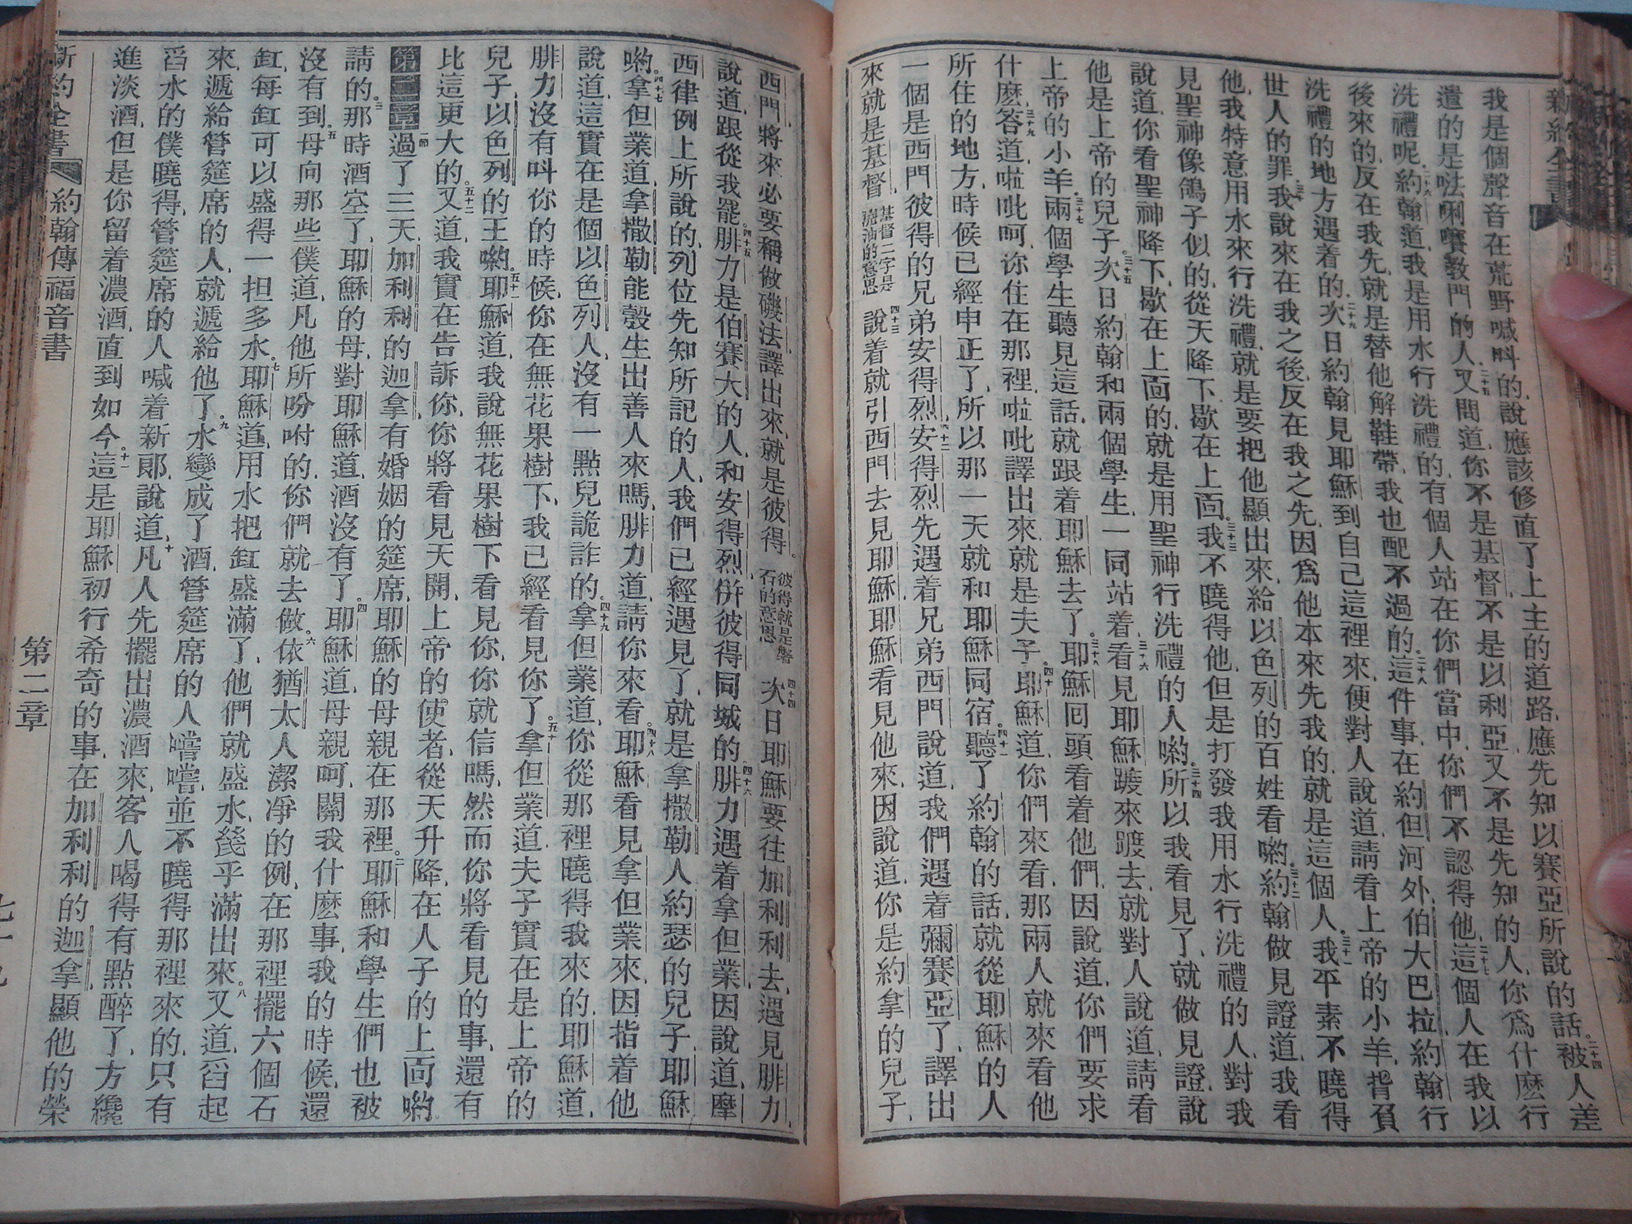 新約全書
我是個聲音在荒野喊呌的說應該修直了上主的道路應先知以賽亞所說的話 二十四 被人差
遣的是𠵽唎㘔教門的人 二十五 又問道你不是基督不是以利亞又不是先知的人你爲什麽行
洗禮呢 二十六 約翰道我是用水行洗禮的有個人站在你們當中你們不認得他 二十七 這個人在我以
後來的反在我先就是替他解鞋帶我也配不過的 二十八 這件事在約但河外伯大巴拉約翰行
洗禮的地方遇着的 二十九 次日約翰見耶穌到自己這裡來便對人說道請看上帝的小羊揹負
世人的罪 三十 我說來在我之後反在我之先因爲他本來先我的就是這個人 三十一 我平素不曉得
他我特意用水來行洗禮就是要把他顯出來給以色列的百姓看喲 三十二 約翰做見證道我看
見聖神像鴿子似的從天降下歇在上面 三十三 我不曉得他但是打發我用水行洗禮的人對我
說道你看聖神降下歇在上面的就是用聖神行洗禮的人喲 三十四 所以我看見了就做見證說
他是上帝的兒子 三十五 次日約翰和兩個學生一同站着 三十六 看見耶穌踱來踱去就對人說道請看
上帝的小羊 三十七 兩個學生聽見這話就跟着耶穌去了 三十八 耶穌回頭看着他們因說道你們要求
什麽 三十九 答道啦吡呵你住在那裡啦吡譯出來就是夫子 四十 耶穌道你們來看那兩人就來看他
所住的地方時候已經申正了所以那一天就和耶穌同宿 四十一 聽了約翰的話就從耶穌的人
一個是西門彼得的兄弟安得烈 四十二 安得烈先遇着兄弟西門說道我們遇着彌賽亞了譯出
來就是基督 基督二字是膏油的意思 四十三 說着就引西門去見耶穌耶穌看見他來因說道你是約拿的兒子
西門將來必要稱做磯法譯出來就是彼得 彼得就是磐石的意思 四十四 次日耶穌要往加利利去遇見腓力
說道跟從我罷 四十五 腓力是伯賽大的人和安得烈併彼得同城的 四十六 腓力遇着拿但業因說道摩
西律例上所說的列位先知所記的人我們已經遇見了就是拿撒勒人約瑟的兒子耶穌
喲 四十七 拿但業道拿撒勒能彀生出善人來嗎腓力道請你來看 四十八 耶穌看見拿但業來因指着他
說道這實在是個以色列人沒有一點兒詭詐的 四十九 拿但業道你從那裡曉得我來的耶穌道
腓力沒有呌你的時候你在無花果樹下我已經看見你了 五十 拿但業道夫子實在是上帝的
兒子以色列的王喲 五十一 耶穌道我說無花果樹下看見你你就信嗎然而你將看見的事還有
比這更大的 五十二 又道我實在告訴你你將看見天開上帝的使者從天升降在人子的上面喲
第二章 一節 過了三天加利利的迦拿有婚姻的筵席耶穌的母親在那裡 二 耶穌和學生們也被
請的 三 那時酒空了耶穌的母對耶穌道酒沒有了 四 耶穌道母親呵關我什麽事我的時候還
沒有到 五 母向那些僕道凡他所吩咐的你們就去做 六 依猶太人潔淨的例在那裡擺六個石
缸每缸可以盛得一担多水 七 耶穌道用水把缸盛滿了他們就盛水㡬乎滿出來 八 又道舀起
來遞給管筵席的人就遞給他了 九 水變成了酒管筵席的人嚐嚐並不曉得那裡來的只有
舀水的僕曉得管筵席的人喊着新郞說道 十 凡人先擺出濃酒來客人喝得有點醉了方纔
進淡酒但是你留着濃酒直到如今 十一 這是耶穌初行希奇的事在加利利的迦拿顯他的榮
新約全書 約翰傳福音書 第二章